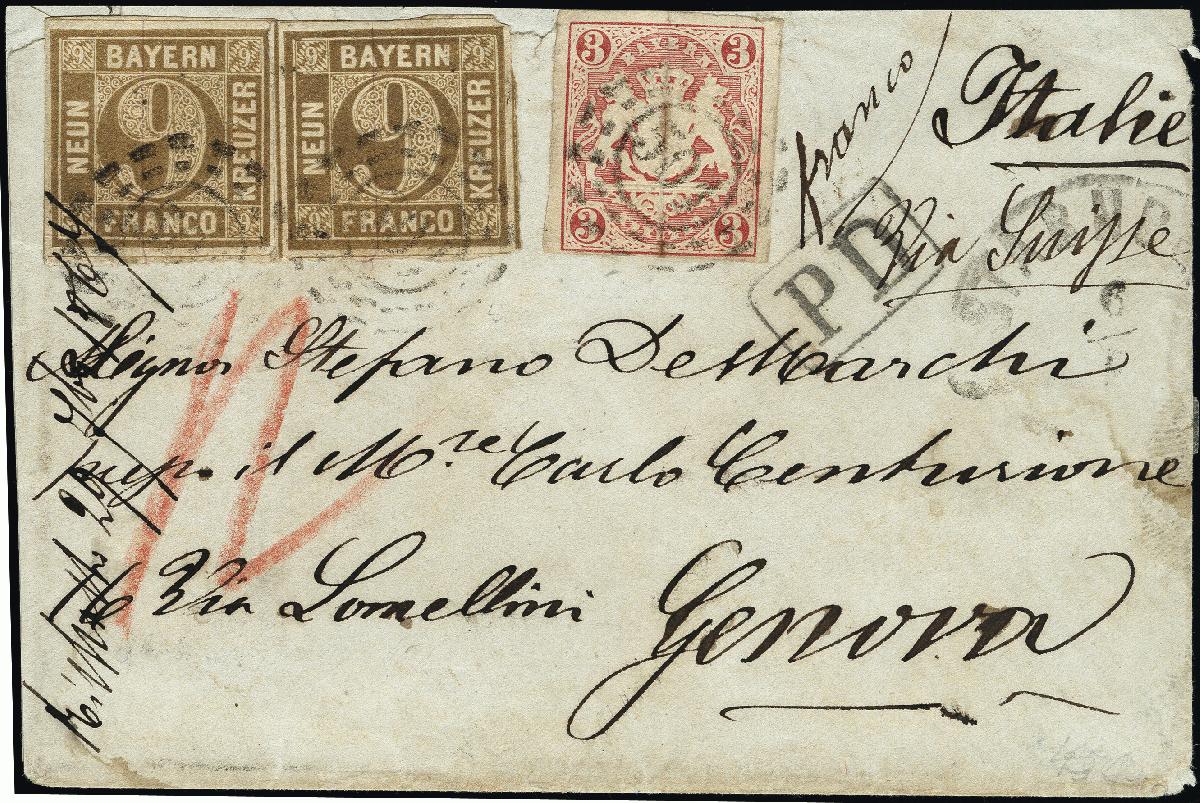 9 BAYERN 9
NEUN 9 KREUZER
9 FRANCO 9
9 BAYERN 9
NEUN 9 KREUZER
9 FRANCO 9
3 BAYERN 3
3 3
franco
Italie
Via Suisse
PD
Signor Stefano De Marchi
il Mre Carlo Centurione
Via Lomellini
Genova
12